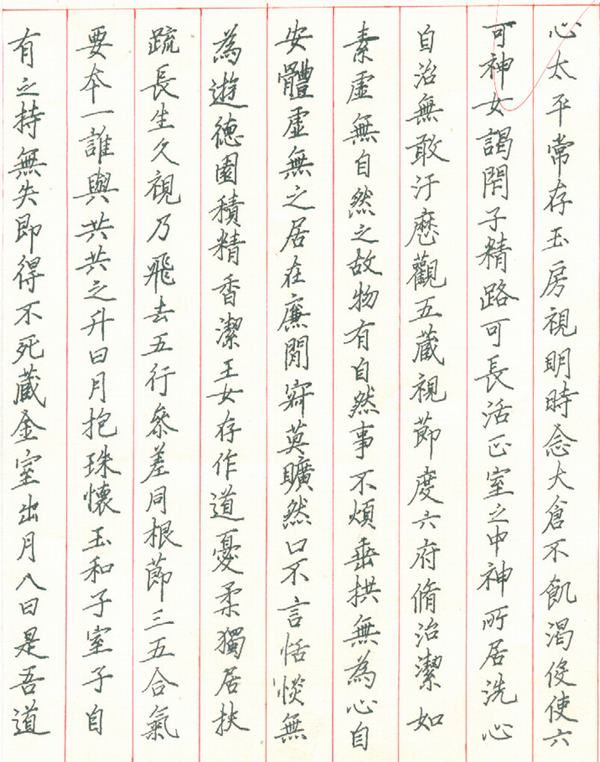 心太平常存玉房視明時念大倉不飢渴伇使六
可神女謁閇子精路可長活正室之中神所居洗心
自治無敢汙歷觀五藏視節度六府脩治潔如
素虛無自然之故物有自然事不煩垂拱無為心自
安體虛無之居在廉間寂莫曠然口不言恬惔無
為遊德園積精香潔王女存作道憂柔獨居扶
疏長生久視乃飛去五行參差同根節三五合氣
要本一誰與共共之升日月抱珠懷玉和子室子自
有之持無失即得不死藏金室出月入日是吾道